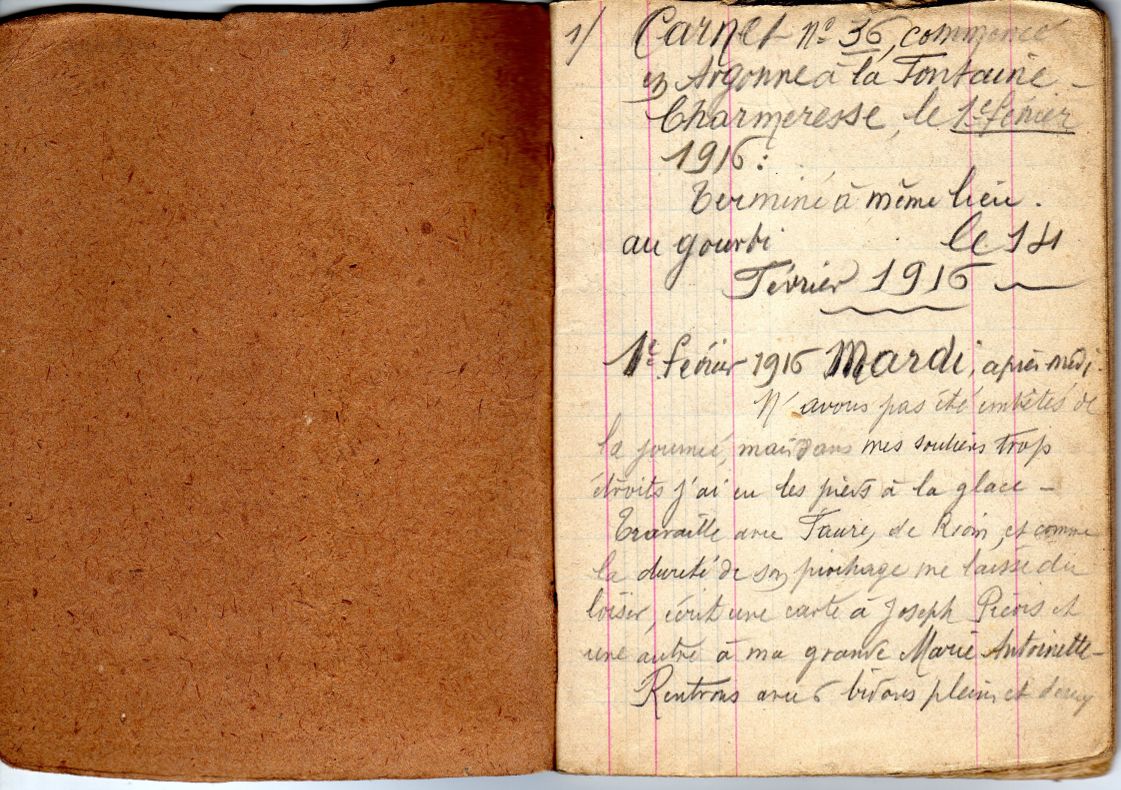 1/ Carnet N° 36, commencé
en Argonne à la Fontaine -
Charmeresse, le 1e février
1916 :
Terminé à même lieu.
au gourbi le 14
Février 1916
1e février 1916 Mardi, après midi.
N'avons pas été embêtés de
la journée, mais dans mes souliers trop
étroits j'ai eu les pieds à la glace -
Travaille avec Faure, de Riom, et comme
la dureté de son piochage me laisse du
loisir, écrit une carte à Joseph et
une autre à ma grande Marie Antoinette -
Rentrons avec 6 bidons pleins et deux